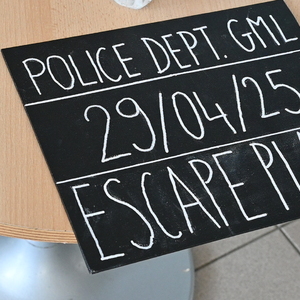 POLICE DEPT. GML
29/04/25
ESCAPE